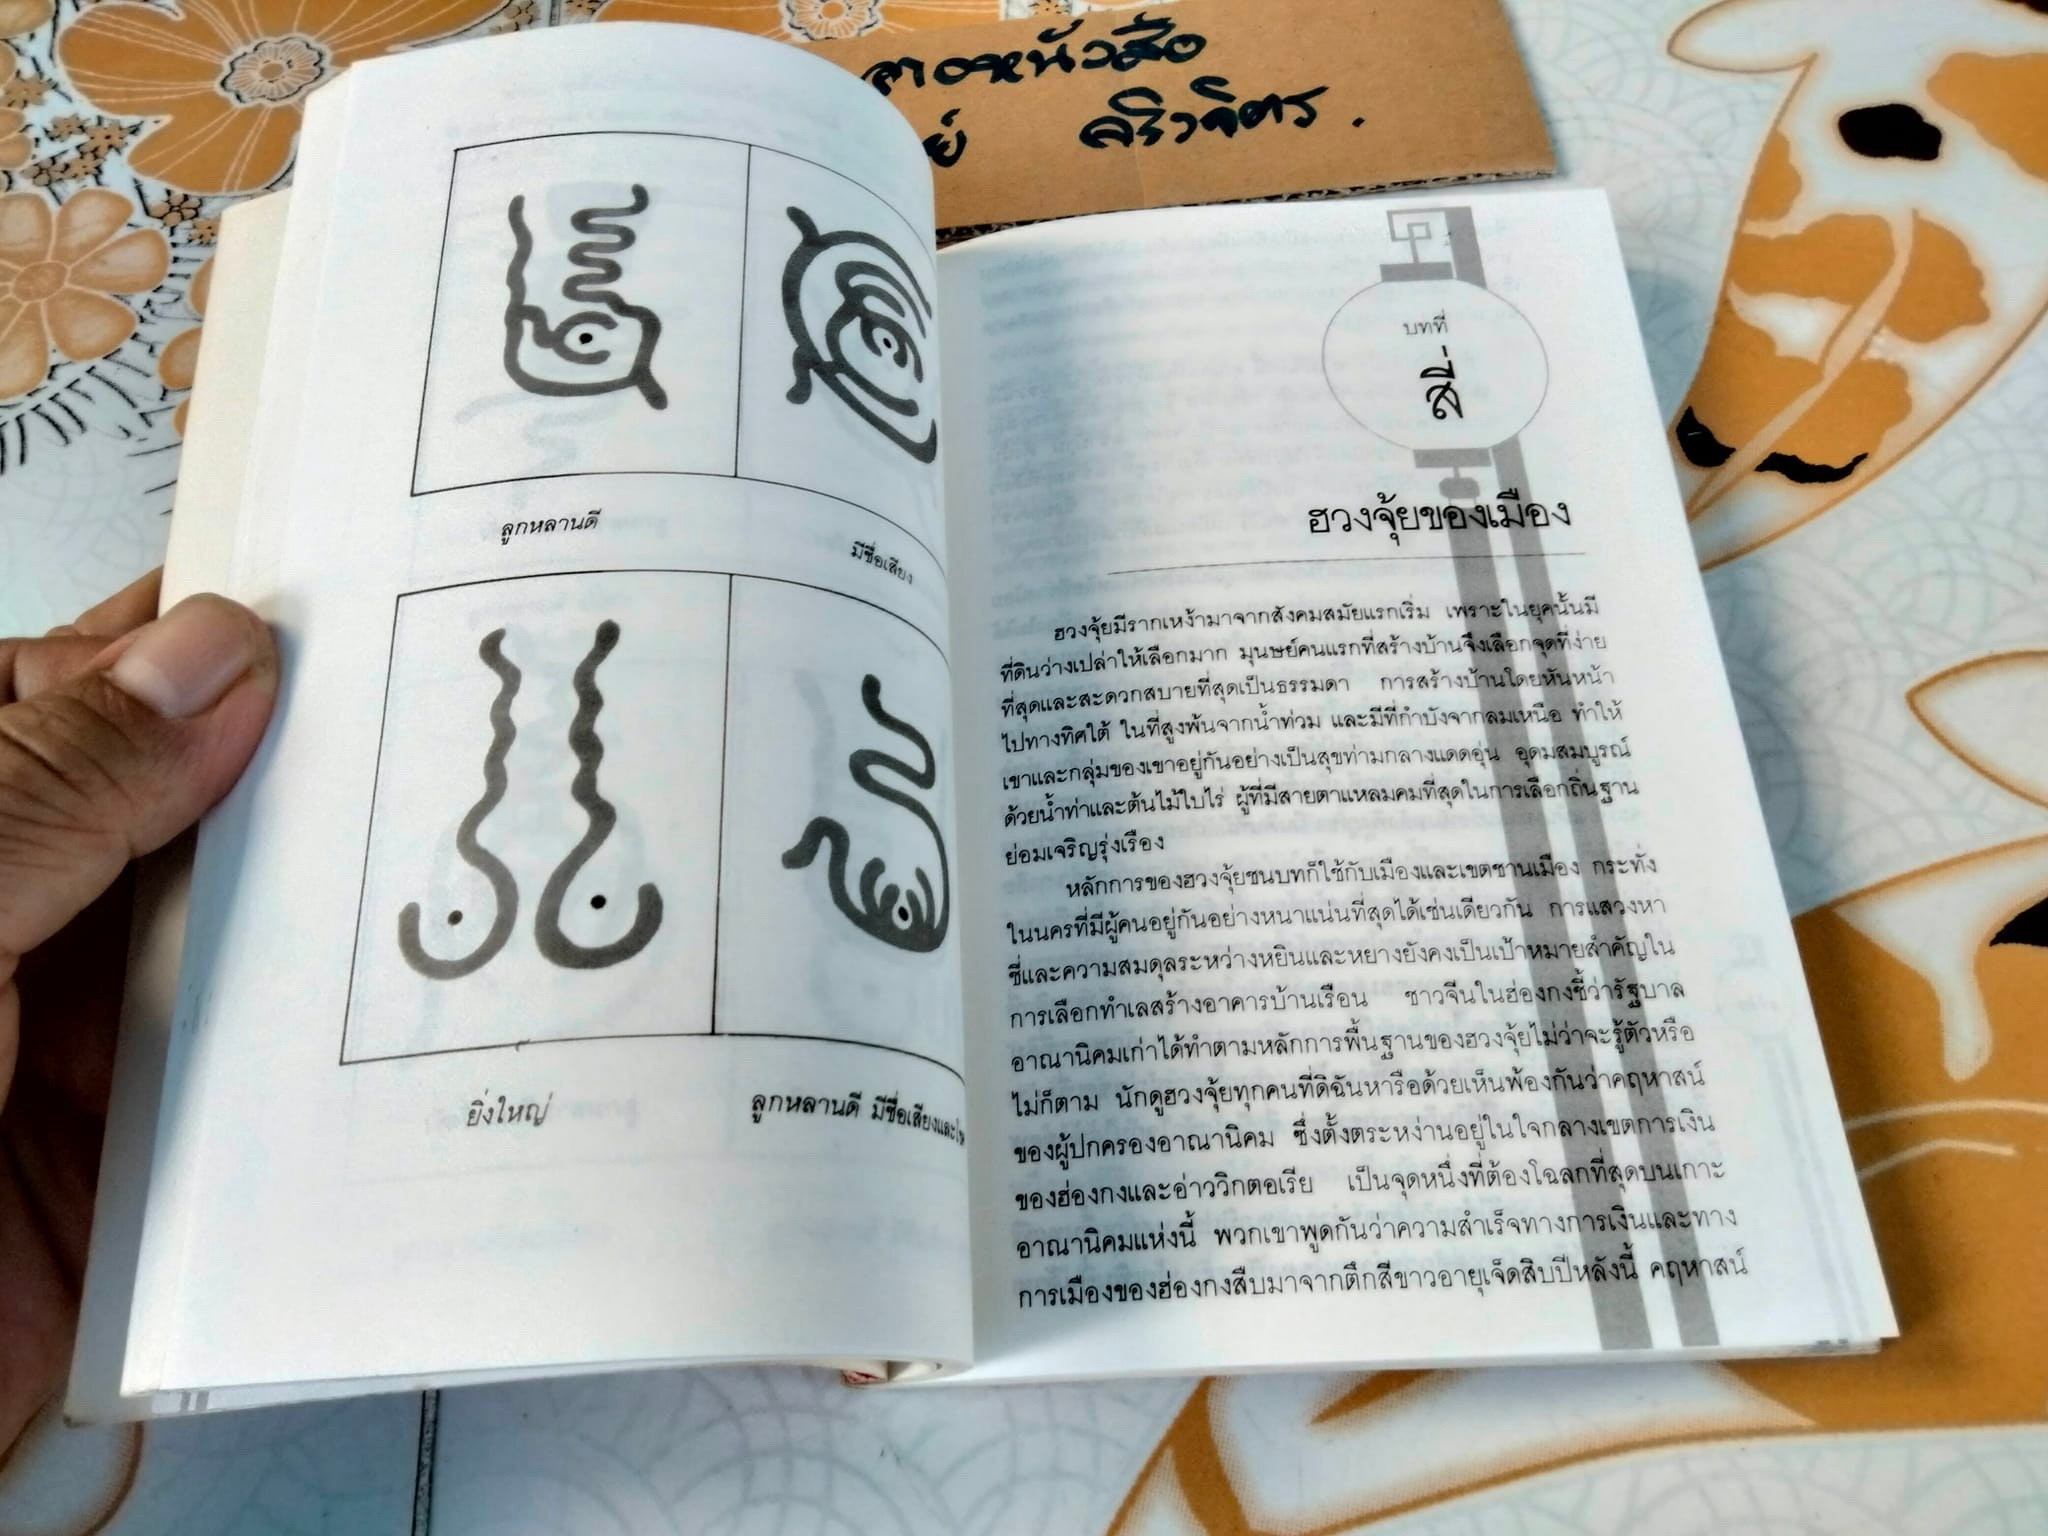 ลูกหลานดี
มีชื่อเสียง
ยิ่งใหญ่
ลูกหลานดี มีชื่อเสียงและ
บทที่
สี่
ฮวงจุ้ยของเมือง
ฮวงจุ้ยมีรากเหง้ามาจากสังคมสมัยแรกเริ่ม เพราะในยุคนั้นมี
ที่ดินว่างเปล่าให้เลือกมาก มนุษย์คนแรกที่สร้างบ้านจึงเลือกจุดที่ง่าย
ที่สุดและสะดวกสบายที่สุดเป็นธรรมดา การสร้างบ้านโดยหันหน้า
ไปทางทิศใต้ ในที่สูงพ้นจากน้ำท่วม และมีที่กำบังจากลมเหนือ ทำให้
เขาและกลุ่มของเขาอยู่กันอย่างเป็นสุขท่ามกลางแดดอุ่น อุดมสมบูรณ์
ด้วยน้ำท่าและต้นไม้ใบไร่ ผู้ที่มีสายตาแหลมคมที่สุดในการเลือกถิ่นฐาน
ย่อมเจริญรุ่งเรือง
หลักการของฮวงจุ้ยชนบทก็ใช้กับเมืองและเขตชานเมือง กระทั่ง
ในนครที่มีผู้คนอยู่กันอย่างหนาแน่นที่สุดได้เช่นเดียวกัน การแสวงหา
ชี่และความสมดุลระหว่างหยินและหยางยังคงเป็นเป้าหมายสำคัญใน
การเลือกทำเลสร้างอาคารบ้านเรือน ชาวจีนในฮ่องกงชี้ว่ารัฐบาล
อาณานิคมเก่าได้ทำตามหลักการพื้นฐานของฮวงจุ้ยไม่ว่าจะรู้ตัวหรือ
ไม่ก็ตาม นักดูฮวงจุ้ยทุกคนที่ดิฉันหารือด้วยเห็นพ้องกันว่าคฤหาสน์
ของผู้ปกครองอาณานิคม ซึ่งตั้งตระหง่านอยู่ในใจกลางเขตการเงิน
ของฮ่องกงและอ่าววิกตอเรีย เป็นจุดหนึ่งที่ต้องโฉลกที่สุดบนเกาะ
อาณานิคมแห่งนี้ พวกเขาพูดกันว่าความสำเร็จทางการเงินและทาง
การเมืองของฮ่องกงสืบมาจากตึกสีขาวอายุเจ็ดสิบปีหลังนี้ คฤหาสน์